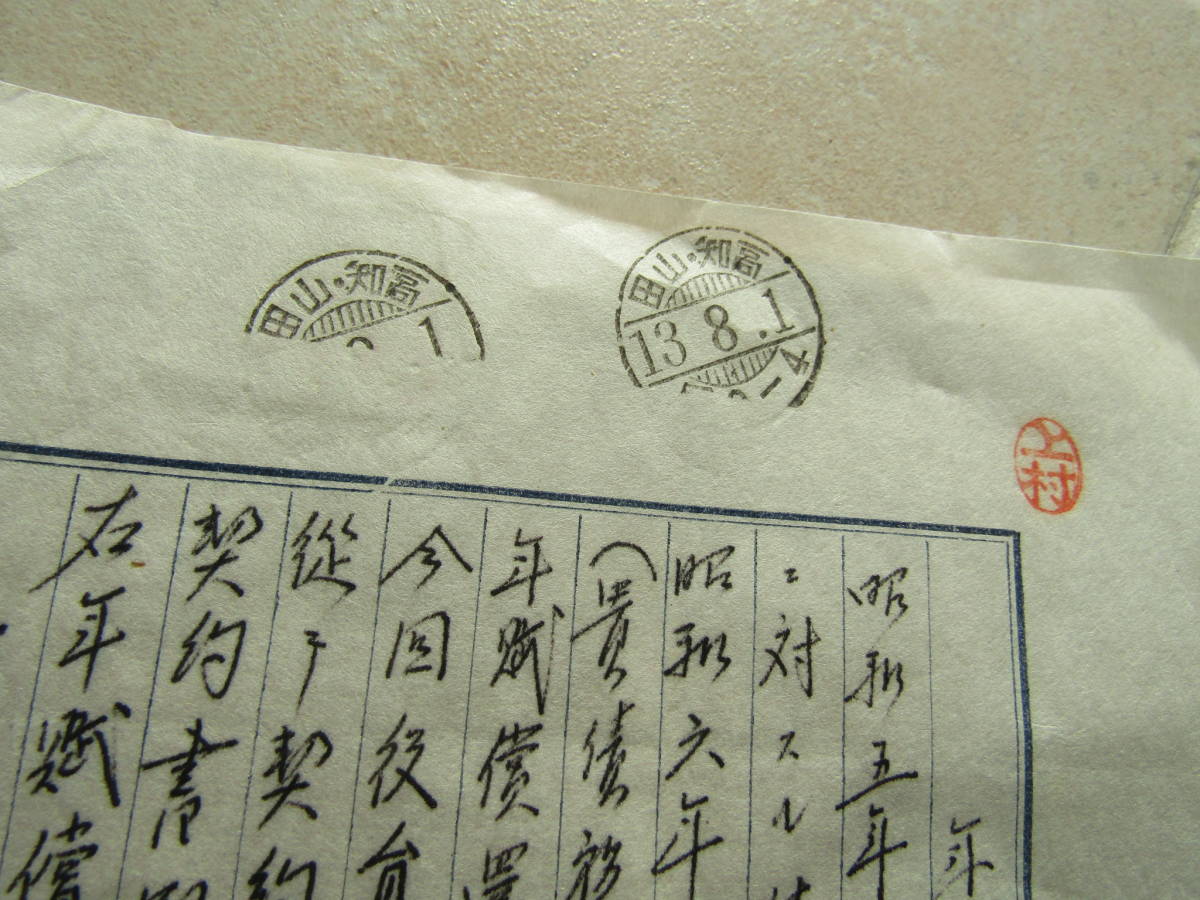 高知・山田
13 8 .1
高知・山田
1
上村
年
昭和五年
ニ対スル
昭和六年
(貴債務
年賦償還
今回役
從テ契約
契約書
右年賦償